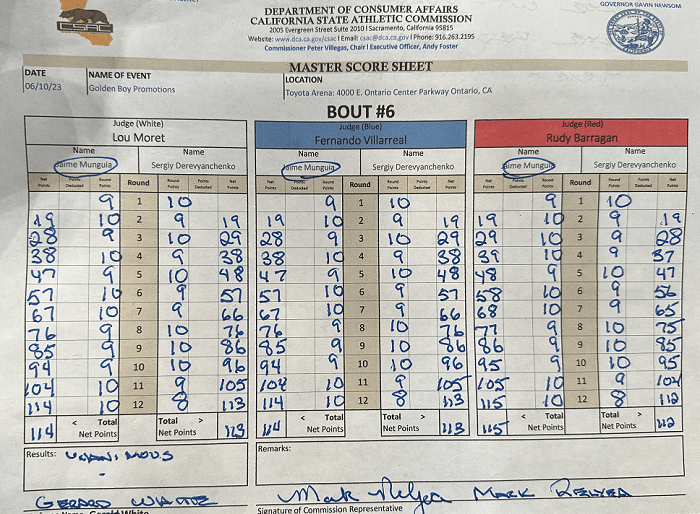 GOVERNOR GAVIN NEWSOM
DEPARTMENT OF CONSUMER AFFAIRS
CSAC
CALIFORNIA STATE ATHLETIC COMMISSION
2005 Evergreen Street Suite 2010 | Sacramento, California 95815
Website: www.dca.ca.gov/csac | Email: csac@dca.ca.gov | Phone: 916.263.2195
Commissioner Peter Villegas, Chair | Executive Officer, Andy Foster
MASTER SCORE SHEET
DATE NAME OF EVENT LOCATION
06/10/23 Golden Boy Promotions Toyota Arena: 4000 E. Ontario Center Parkway Ontario, CA
BOUT #6
Judge (White) Judge (Blue) Judge (Red)
Lou Moret Fernando Villarreal Rudy Barragan
Name Name Name Name Name Name
Jaime Munguia Sergiy Derevyanchenko Jaime Munguia Sergiy Derevyanchenko Jaime Munguia Sergiy Derevyanchenko
Net Points Points Deducted Round Points Round Round Points Points Deducted Net Points Net Points Points Deducted Round Points Round Round Points Points Deducted Net Points Net Points Points Deducted Round Points Round Round Points Points Deducted Net Points
9 1 10 9 1 10 9 1 10
19 10 2 9 19 19 10 2 9 19 19 10 2 9 19
28 9 3 10 29 28 9 3 10 29 29 10 3 9 28
38 10 4 9 38 38 10 4 9 38 39 10 4 9 37
47 9 5 10 48 47 9 5 10 48 48 9 5 10 47
57 10 6 9 57 57 10 6 9 57 58 10 6 9 56
67 10 7 9 66 67 10 7 9 66 68 10 7 9 65
76 9 8 10 76 76 9 8 10 76 77 9 8 10 75
85 9 9 10 86 85 9 9 10 86 86 9 9 10 85
94 9 10 10 96 94 9 10 10 96 95 9 10 10 95
104 10 11 9 105 104 10 11 9 105 105 10 11 9 104
114 10 12 8 113 114 10 12 8 113 115 10 12 8 112
114 < Total > Net Points Net Points 113 114 < Total > Net Points Net Points 113 115 < Total > Net Points Net Points 112
Results: UNANIMOUS Remarks:
GERARD WHITE Mark Relyea MARK RELYEA
Gerald White Signature of Commission Representative